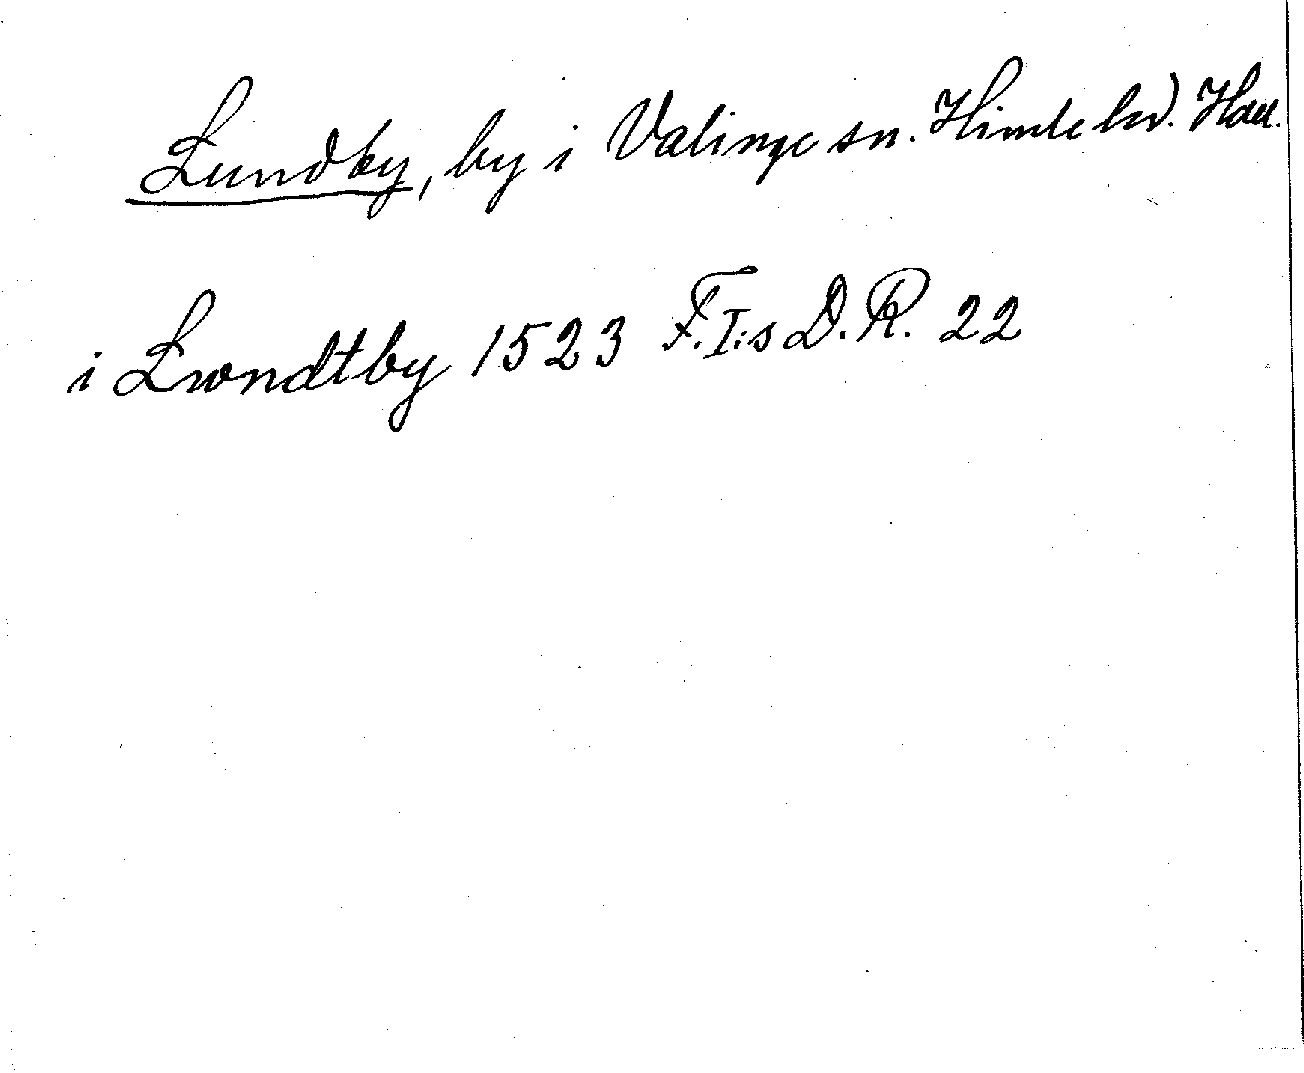 Lundby, by i Valinge sn. Himle hd. Hall.
i Lwndtby 1523 F.I:s D.R. 22